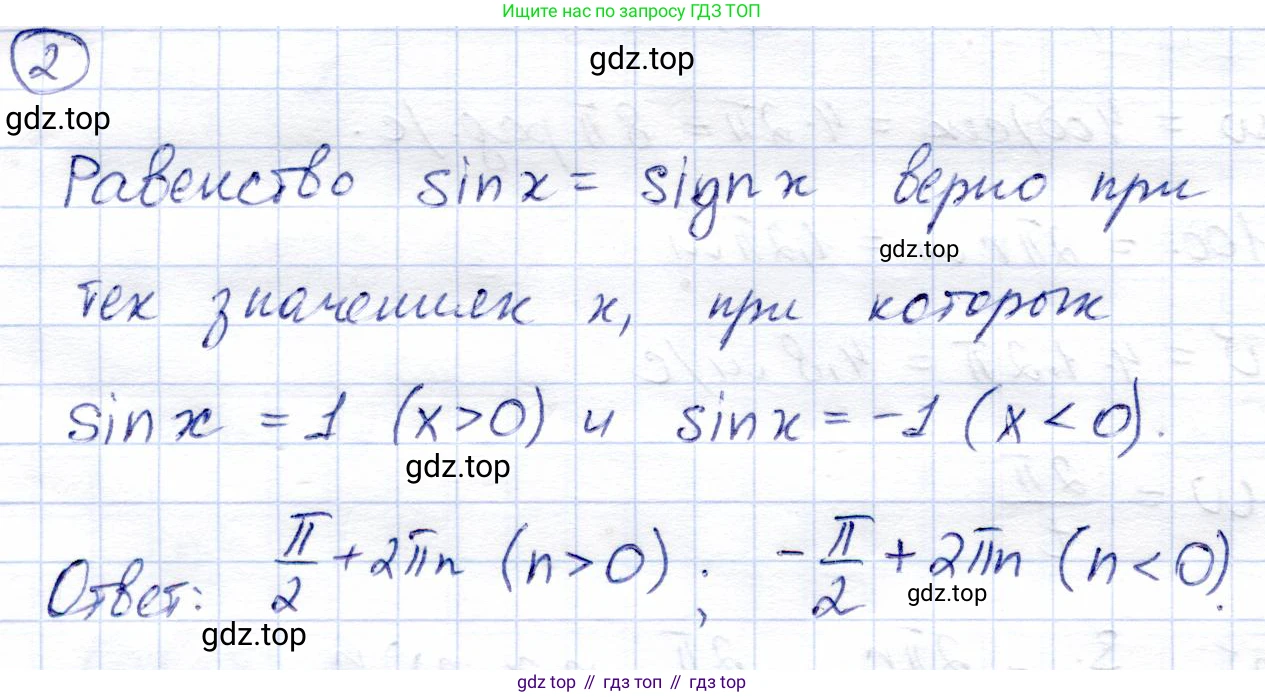 Ищите нас по запросу ГДЗ ТОП
2
gdz.top
gdz.top
Равенство sin x = sign x верно при
gdz.top
тех значениях x, при которых
sin x = 1 (x > 0) и sin x = -1 (x < 0).
gdz.top
Ответ: π/2 + 2πn (n > 0); -π/2 + 2πn (n < 0).
gdz.top
gdz.top
gdz top // гдз топ // gdz top